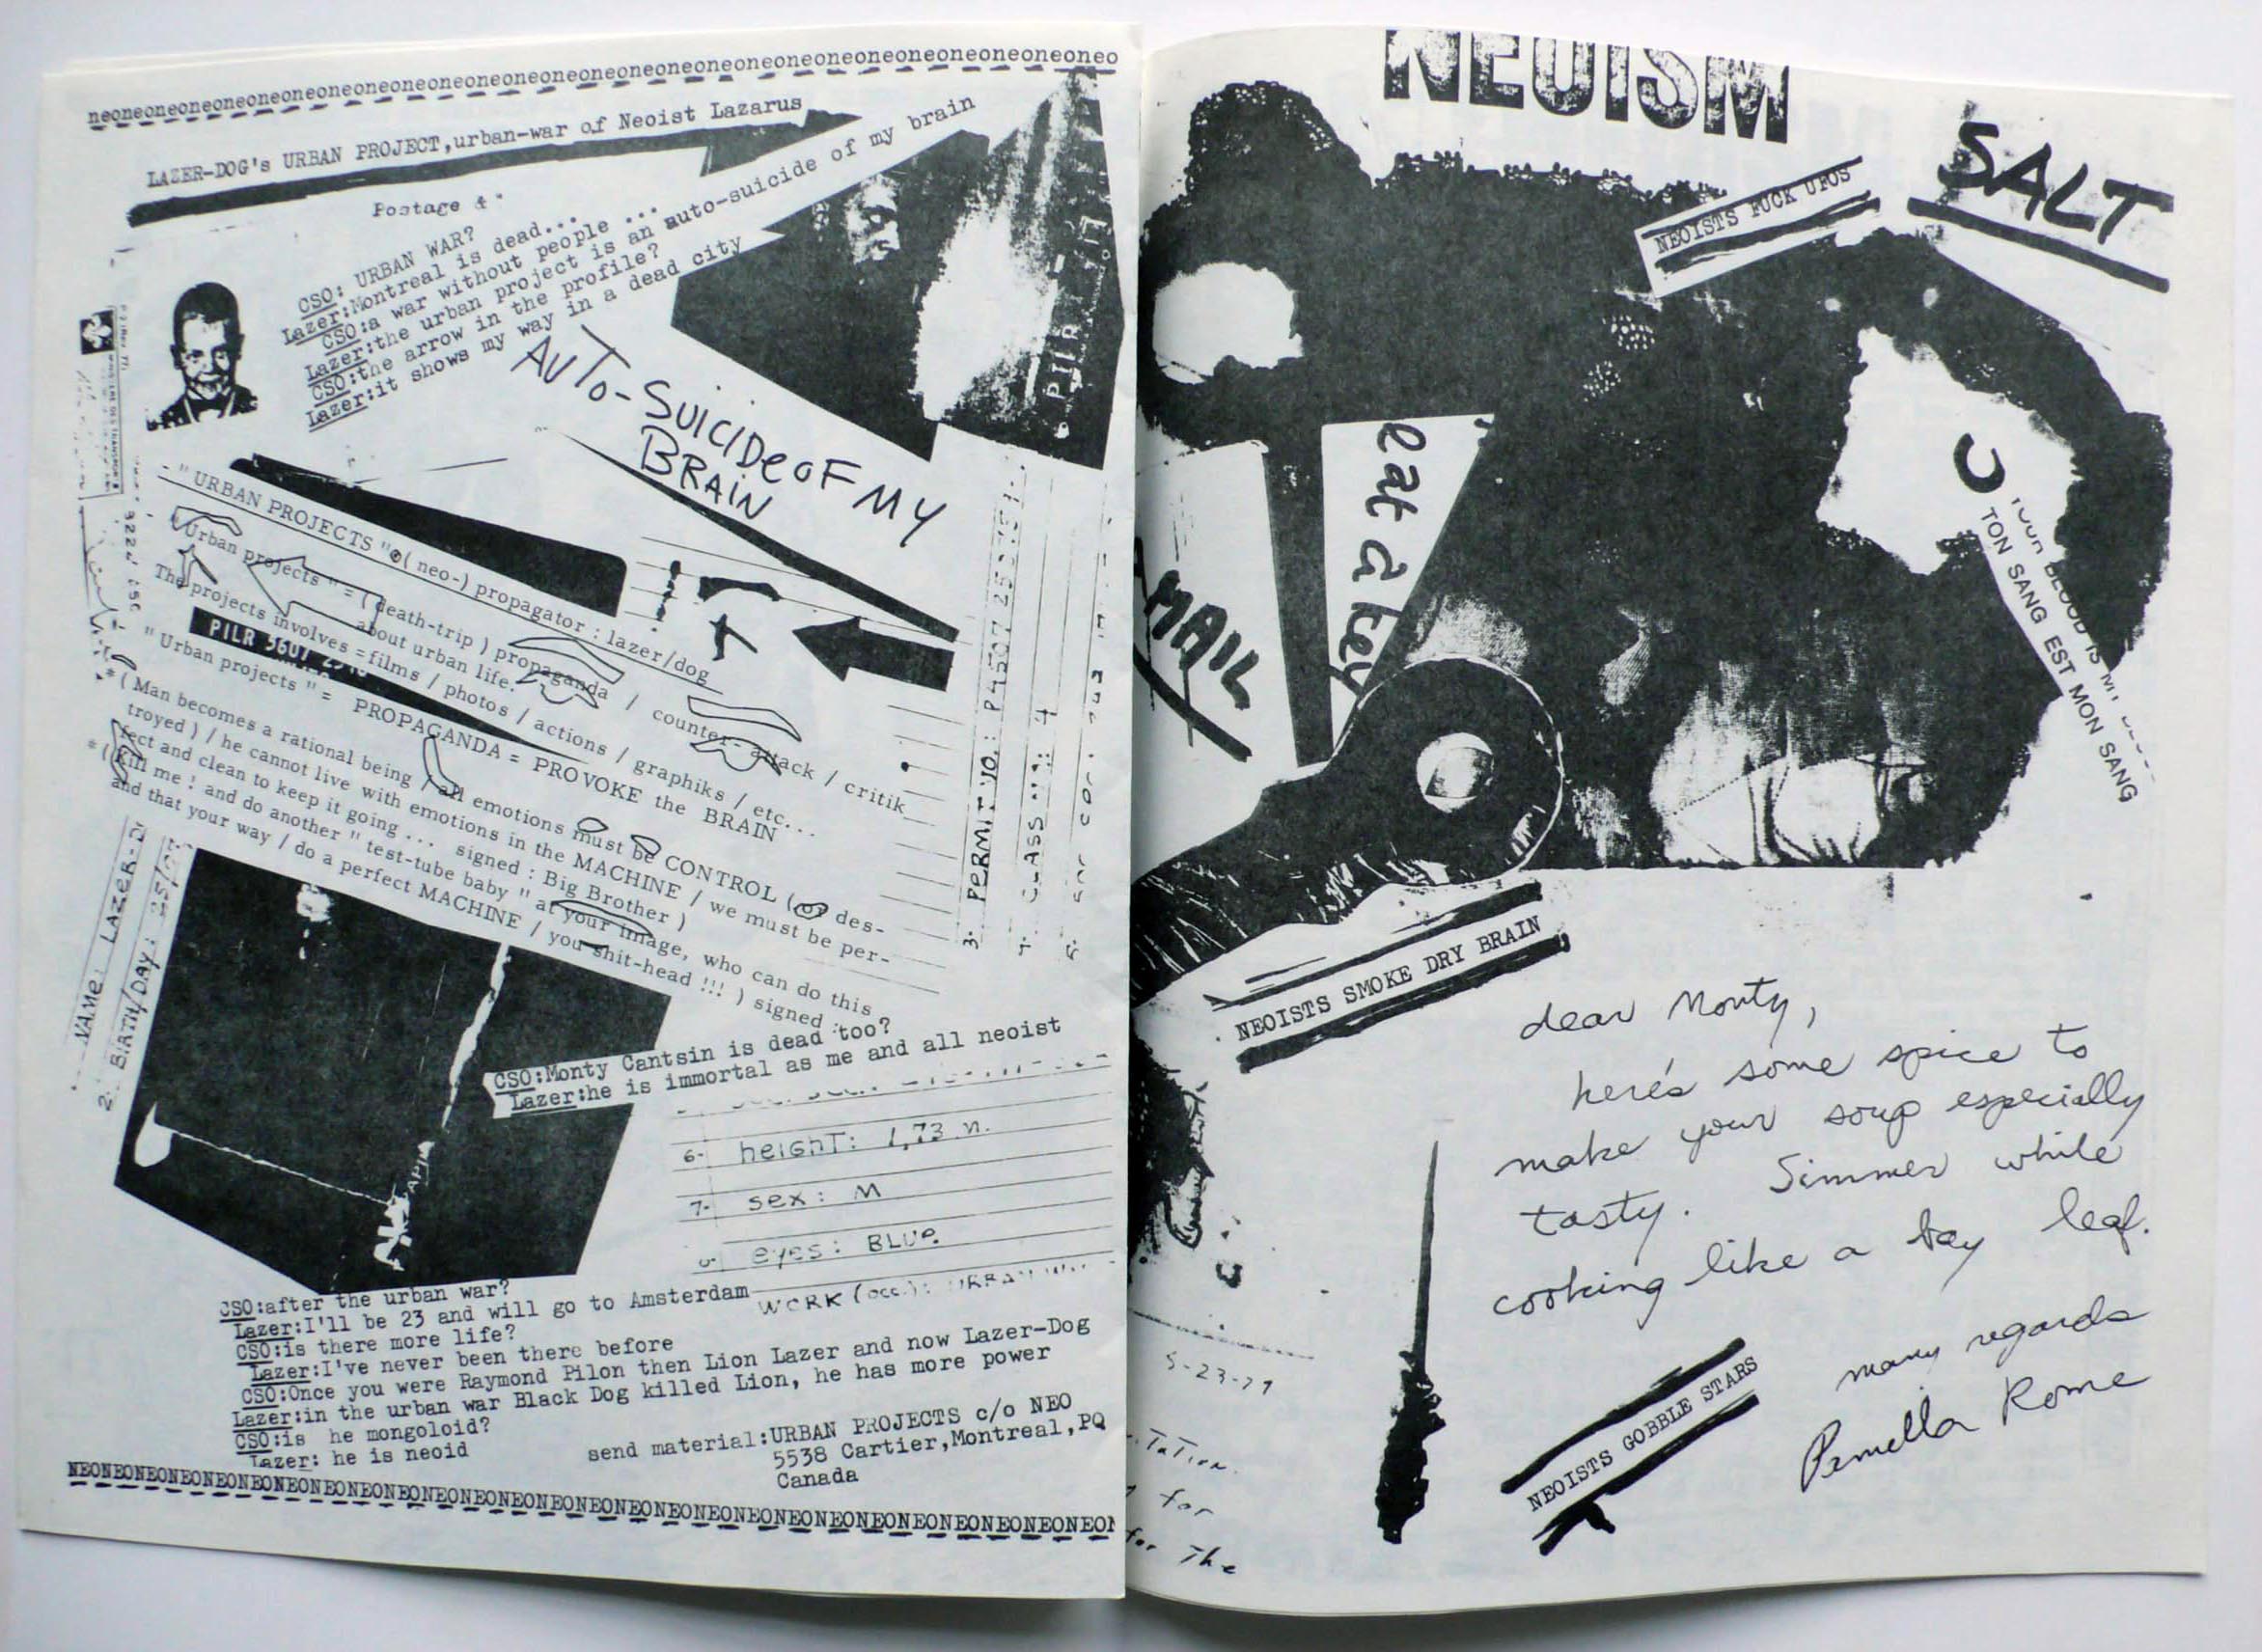 neoneoneoneoneoneoneoneoneoneoneoneoneoneoneoneoneoneoneoneoneoneoneoneoneoneo
LAZER-DOG's URBAN PROJECT,urban-war of Neoist Lazarus
Postage &
CSO: URBAN WAR?
Lazer:Montreal is dead...
CSO:a war without people ...
Lazer:the urban project is an auto-suicide of my brain
CSO:the arrow in the profile?
Lazer:it shows my way in a dead city
AUTO-SUICIDE OF MY
BRAIN
" URBAN PROJECTS " ( neo-) propagator : lazer/dog
" Urban projects " = ( death-trip ) propaganda / counter-attack / critik
about urban life.
The projects involves = films / photos / actions / graphiks / etc...
PILR 3607
" Urban projects " = PROPAGANDA = PROVOKE the BRAIN
* ( Man becomes a rational being / all emotions must be CONTROL ( or des-
troyed ) / he cannot live with emotions in the MACHINE / we must be per-
fect and clean to keep it going ... signed : Big Brother )
* ( Kill me ! and do another " test-tube baby " at your image, who can do this
and that your way / do a perfect MACHINE / you shit-head !!! ) signed :
3. PERMIT NO.:
CLASS
NAME: LAZER-D
2. BIRTH/DAY:
CSO:Monty Cantsin is dead too?
Lazer:he is immortal as me and all neoist
6- height: 1,73 m.
7- sex: M
eyes: BLUE
WORK (occ.): URBAN
CSO:after the urban war?
Lazer:I'll be 23 and will go to Amsterdam
CSO:is there more life?
Lazer:I've never been there before
CSO:Once you were Raymond Pilon then Lion Lazer and now Lazer-Dog
Lazer:in the urban war Black Dog killed Lion, he has more power
CSO:is he mongoloid?
Lazer: he is neoid
send material:URBAN PROJECTS c/o NEO
5538 Cartier,Montreal,PQ
Canada
NEONEONEONEONEONEONEONEONEONEONEONEONEONEONEONEONEONEONEONEONEONEONEONEONEON
NEOISM
SALT
NEOISTS FUCK UFOS
eat a key
MAIL
YOUR BLOOD IS MY
TON SANG EST MON SANG
NEOISTS SMOKE DRY BRAIN
dear Monty,
here's some spice to
make your soup especially
tasty. Simmer while
cooking like a bay leaf.
many regards
Pamella Rome
NEOISTS GOBBLE STARS
5-23-79
for
for The